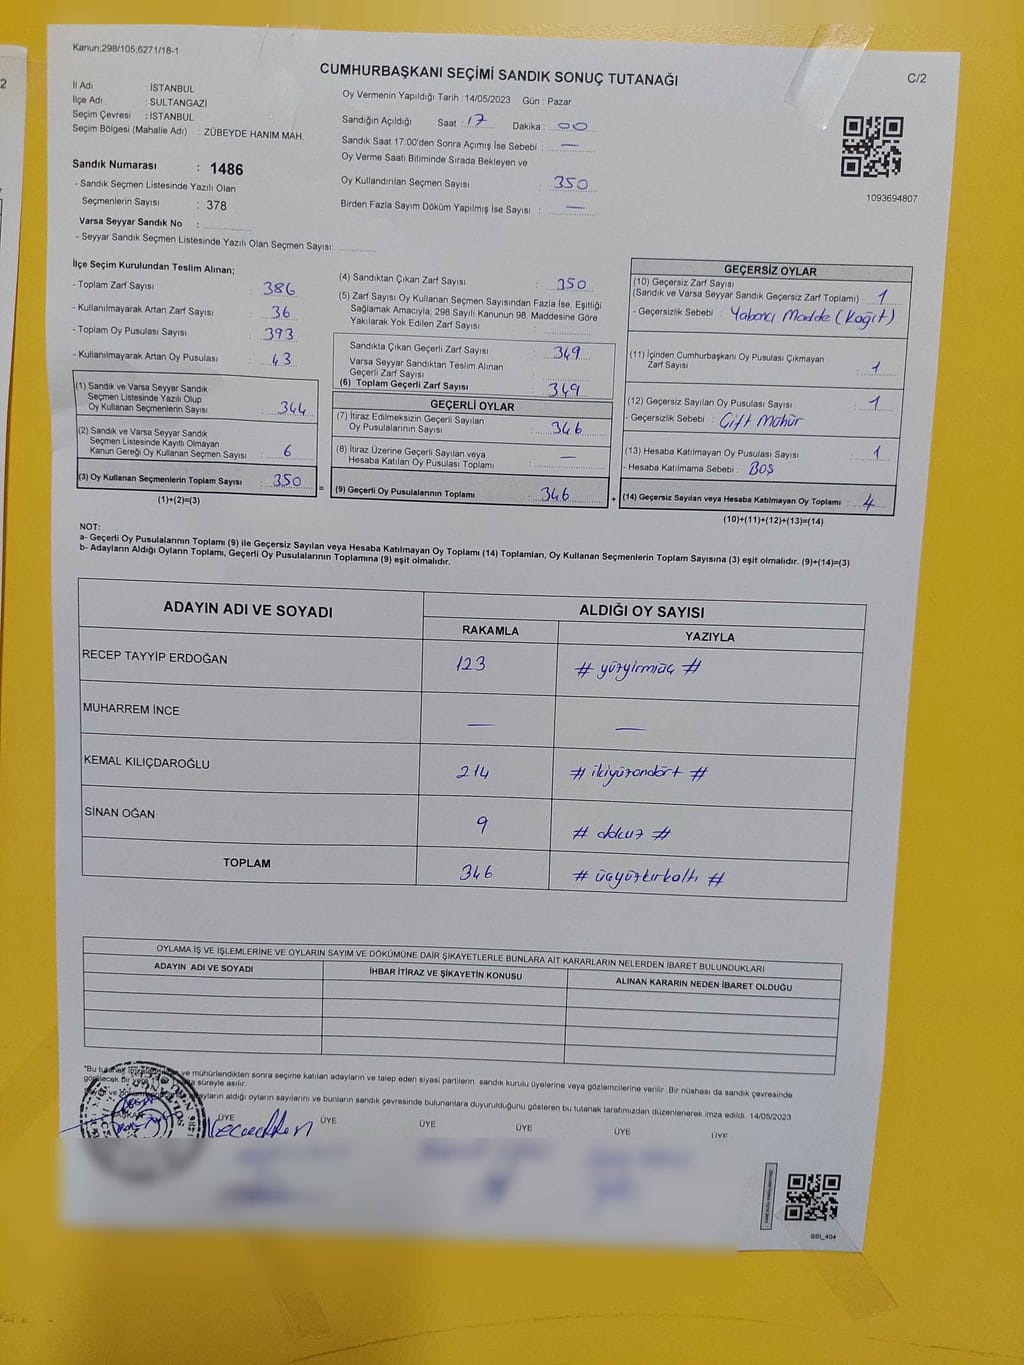 Kanun;298/105;6271/18-1
C/2
CUMHURBAŞKANI SEÇİMİ SANDIK SONUÇ TUTANAĞI
İl Adı : İSTANBUL
İlçe Adı : SULTANGAZİ
Seçim Çevresi : İSTANBUL
Seçim Bölgesi (Mahalle Adı) : ZÜBEYDE HANIM MAH.
Sandık Numarası : 1486
- Sandık Seçmen Listesinde Yazılı Olan
Seçmenlerin Sayısı : 378
Varsa Seyyar Sandık No :
- Seyyar Sandık Seçmen Listesinde Yazılı Olan Seçmen Sayısı:
Oy Vermenin Yapıldığı Tarih : 14/05/2023 Gün : Pazar
Sandığın Açıldığı Saat : 17 Dakika : 00
Sandık Saat 17:00'den Sonra Açımış İse Sebebi : —
Oy Verme Saati Bitiminde Sırada Bekleyen ve
Oy Kullandırılan Seçmen Sayısı : 350
Birden Fazla Sayım Döküm Yapılmış İse Sayısı : —
1093694807
İlçe Seçim Kurulundan Teslim Alınan;
- Toplam Zarf Sayısı : 386
- Kullanılmayarak Artan Zarf Sayısı : 36
- Toplam Oy Pusulası Sayısı : 393
- Kullanılmayarak Artan Oy Pusulası : 43
(1) Sandık ve Varsa Seyyar Sandık
Seçmen Listesinde Yazılı Olup
Oy Kullanan Seçmenlerin Sayısı : 344
(2) Sandık ve Varsa Seyyar Sandık
Seçmen Listesinde Kayıtlı Olmayan
Kanun Gereği Oy Kullanan Seçmen Sayısı : 6
(3) Oy Kullanan Seçmenlerin Toplam Sayısı : 350
(1)+(2)=(3)
=
(4) Sandıktan Çıkan Zarf Sayısı : 350
(5) Zarf Sayısı Oy Kullanan Seçmen Sayısından Fazla İse, Eşitliği
Sağlamak Amacıyla, 298 Sayılı Kanunun 98. Maddesine Göre
Yakılarak Yok Edilen Zarf Sayısı :
Sandıkta Çıkan Geçerli Zarf Sayısı : 349
Varsa Seyyar Sandıktan Teslim Alınan
Geçerli Zarf Sayısı :
(6) Toplam Geçerli Zarf Sayısı : 349
GEÇERLİ OYLAR
(7) İtiraz Edilmeksizin Geçerli Sayılan
Oy Pusulalarının Sayısı : 346
(8) İtiraz Üzerine Geçerli Sayılan veya
Hesaba Katılan Oy Pusulası Toplamı : —
(9) Geçerli Oy Pusulalarının Toplamı : 346
+
GEÇERSİZ OYLAR
(10) Geçersiz Zarf Sayısı
(Sandık ve Varsa Seyyar Sandık Geçersiz Zarf Toplamı) : 1
- Geçersizlik Sebebi : Yabancı Madde (Kağıt)
(11) İçinden Cumhurbaşkanı Oy Pusulası Çıkmayan
Zarf Sayısı : 1
(12) Geçersiz Sayılan Oy Pusulası Sayısı : 1
- Geçersizlik Sebebi : Çift Mühür
(13) Hesaba Katılmayan Oy Pusulası Sayısı : 1
- Hesaba Katılmama Sebebi : BOŞ
(14) Geçersiz Sayılan veya Hesaba Katılmayan Oy Toplamı : 4
(10)+(11)+(12)+(13)=(14)
NOT:
a- Geçerli Oy Pusulalarının Toplamı (9) ile Geçersiz Sayılan veya Hesaba Katılmayan Oy Toplamı (14) Toplamları, Oy Kullanan Seçmenlerin Toplam Sayısına (3) eşit olmalıdır. (9)+(14)=(3)
b- Adayların Aldığı Oyların Toplamı, Geçerli Oy Pusulalarının Toplamına (9) eşit olmalıdır.
ADAYIN ADI VE SOYADI ALDIĞI OY SAYISI
RAKAMLA YAZIYLA
RECEP TAYYİP ERDOĞAN 123 # yüzyirmiüç #
MUHARREM İNCE — —
KEMAL KILIÇDAROĞLU 214 # ikiyüzondört #
SİNAN OĞAN 9 # dokuz #
TOPLAM 346 # üçyüzkırkaltı #
OYLAMA İŞ VE İŞLEMLERİNE VE OYLARIN SAYIM VE DÖKÜMÜNE DAİR ŞİKAYETLERLE BUNLARA AİT KARARLARIN NELERDEN İBARET BULUNDUKLARI
ADAYIN ADI VE SOYADI İHBAR İTİRAZ VE ŞİKAYETİN KONUSU ALINAN KARARIN NEDEN İBARET OLDUĞU
"Bu ve mühürlendikten sonra seçime katılan adayların ve talep eden siyasi partilerin sandık kurulu üyelerine veya gözlemcilerine verilir. Bir nüshası da sandık çevresinde
süreyle asılır.
aldığı oyların sayılarını ve bunların sandık çevresinde bulunanlara duyurulduğunu gösteren bu tutanak tarafımızdan düzenlenerek imza edildi. 14/05/2023
ÜYE ÜYE ÜYE ÜYE ÜYE ÜYE
SSI_404